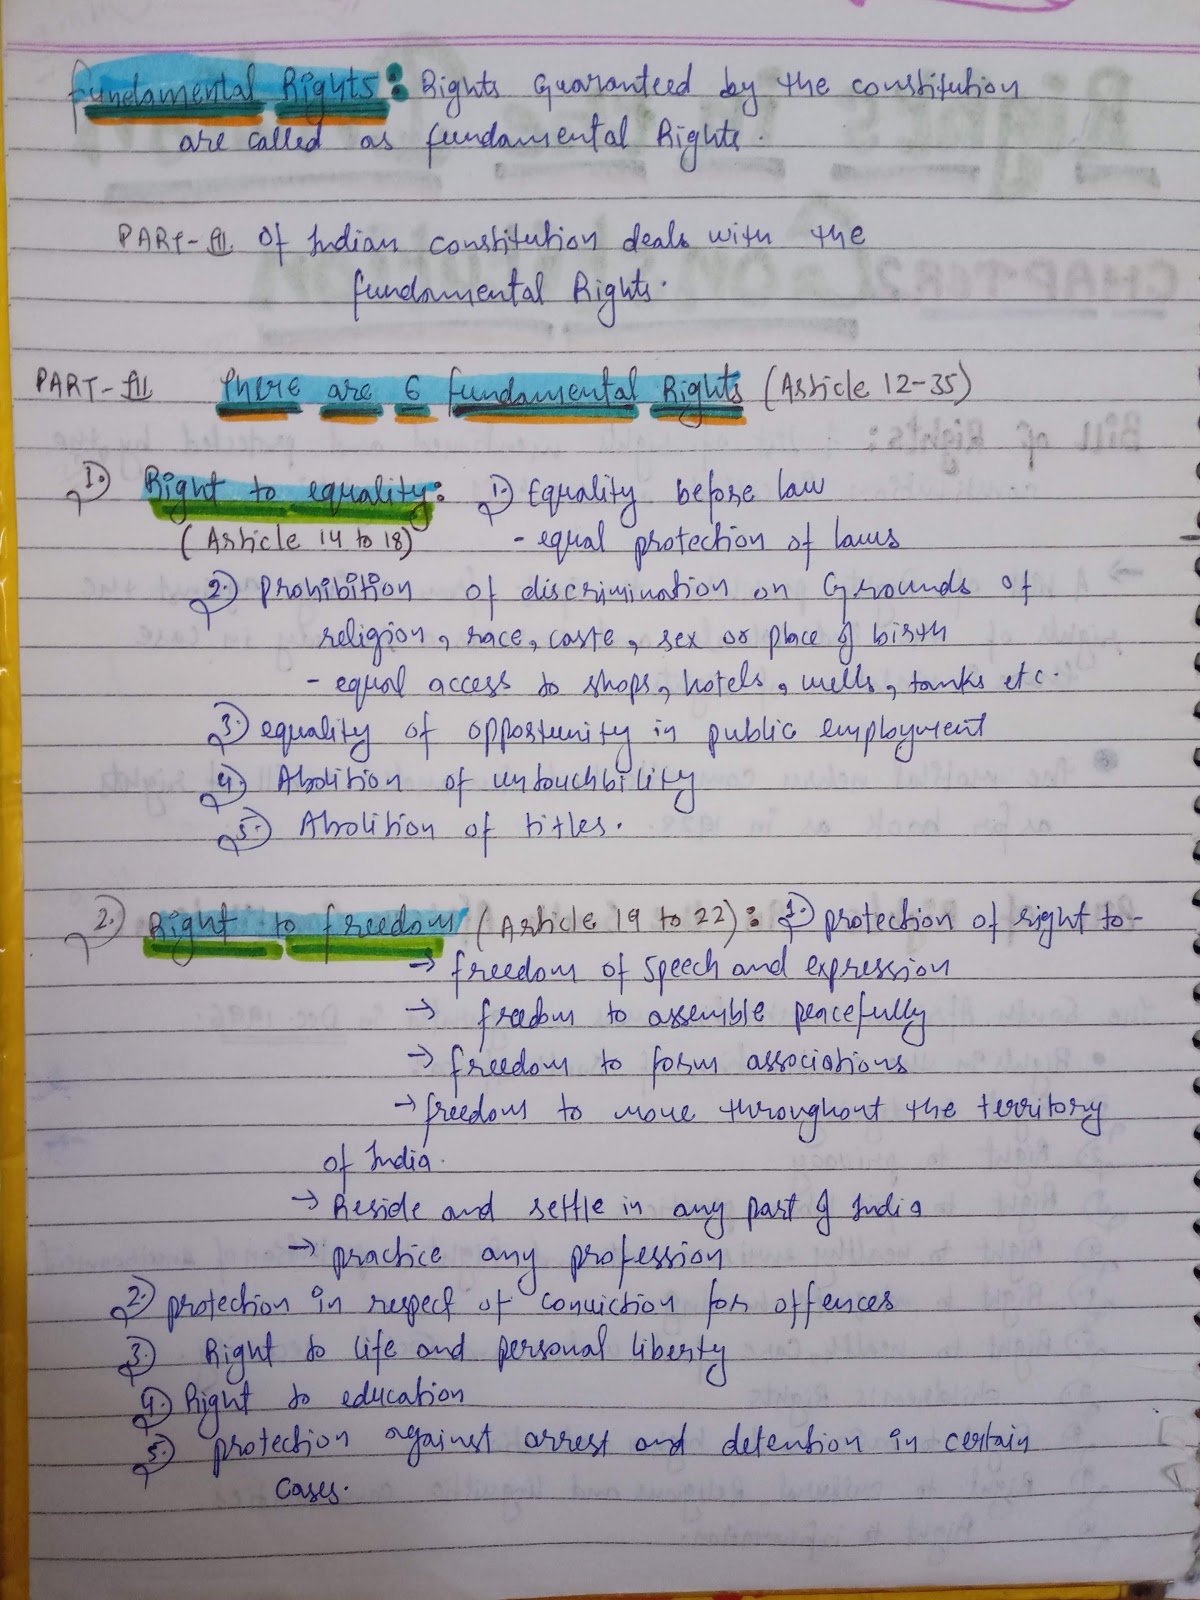 Fundamental Rights: Rights Guaranteed by the constitution
are called as fundamental Rights.
PART-III Of Indian constitution deals with the
fundamental Rights.
PART-III There are 6 fundamental Rights (Article 12-35)
1.) Right to equality: 1.) Equality before law
(Article 14 to 18) - equal protection of laws
2.) prohibition of discrimination on Grounds of
religion, race, caste, sex or place of birth
- equal access to shops, hotels, wells, tanks etc.
3.) equality of opportunity in public employment
4.) Abolition of untouchbility
5.) Abolition of titles.
2.) Right to freedom (Article 19 to 22): 1.) protection of right to-
→ freedom of speech and expression
→ freedom to assemble peacefully
→ freedom to form associations
→ freedom to move throughout the territory
of India.
→ Reside and settle in any part of India
→ practice any profession
2.) protection in respect of conviction for offences
3.) Right to life and personal liberty
4.) Right to education
5.) protection against arrest and detention in certain
cases.